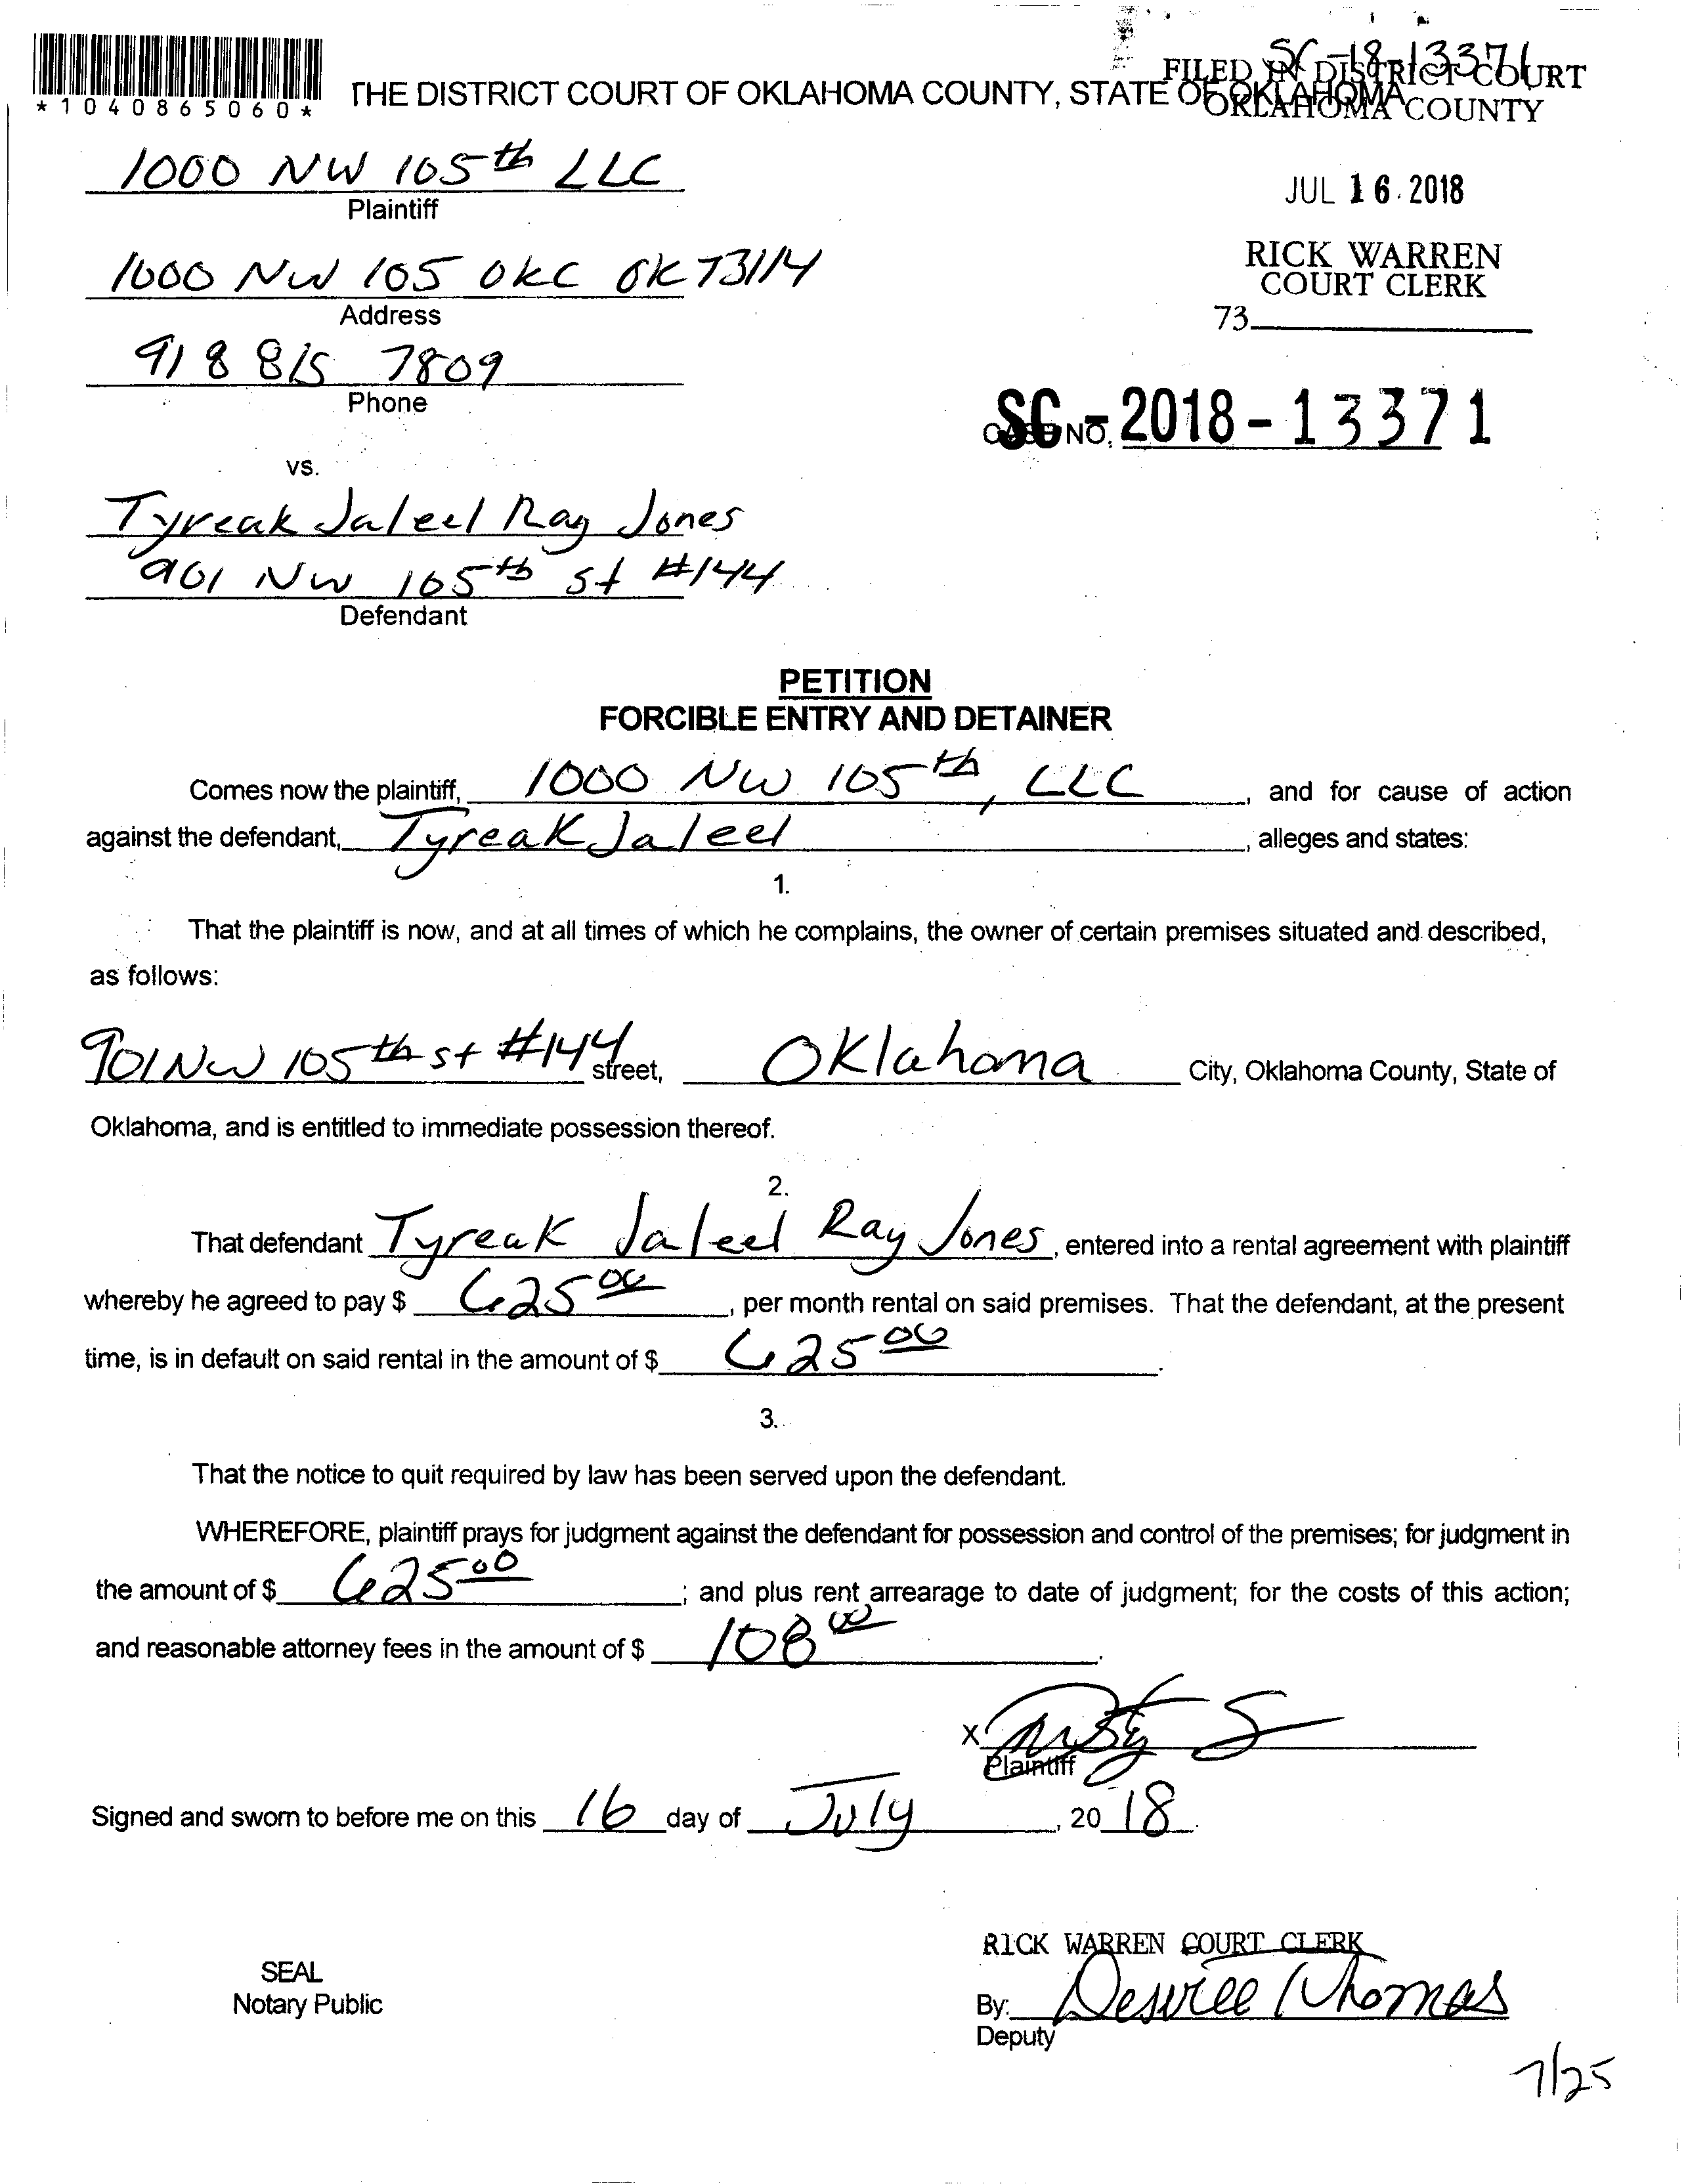 SC-18-13371
FILED IN DISTRICT COURT
THE DISTRICT COURT OF OKLAHOMA COUNTY, STATE OF OKLAHOMA
OKLAHOMA COUNTY
*1040865060*
1000 NW 105th LLC
Plaintiff
JUL 16 2018
1000 NW 105 OKC OK 73114
Address
RICK WARREN
COURT CLERK
73
918 815 7809
Phone
SC-2018-13371
CASE NO.
vs.
Tyreak Jaleel Ray Jones
901 NW 105th St #144
Defendant
PETITION
FORCIBLE ENTRY AND DETAINER
Comes now the plaintiff, 1000 NW 105th, LLC, and for cause of action
against the defendant, Tyreak Jaleel, alleges and states:
1.
That the plaintiff is now, and at all times of which he complains, the owner of certain premises situated and described,
as follows:
901 NW 105th st #144 street, Oklahoma City, Oklahoma County, State of
Oklahoma, and is entitled to immediate possession thereof.
2.
That defendant Tyreak Jaleel Ray Jones, entered into a rental agreement with plaintiff
whereby he agreed to pay $ 625 00, per month rental on said premises. That the defendant, at the present
time, is in default on said rental in the amount of $ 625 00.
3.
That the notice to quit required by law has been served upon the defendant.
WHEREFORE, plaintiff prays for judgment against the defendant for possession and control of the premises; for judgment in
the amount of $ 625 00; and plus rent arrearage to date of judgment; for the costs of this action;
and reasonable attorney fees in the amount of $ 108 00.
X
Plaintiff
Signed and sworn to before me on this 16 day of July, 20 18.
RICK WARREN COURT CLERK
SEAL
Notary Public
By: Desiree Thomas
Deputy
7/25